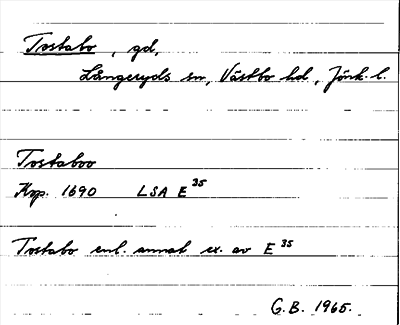 Tostabo, gd,
Långaryds sn, Västbo hd, Jönk. l.
Tostaboo
Krp. 1690 LSA E 35
Tostabo enl. annat ex. av E 35
G.B. 1965.